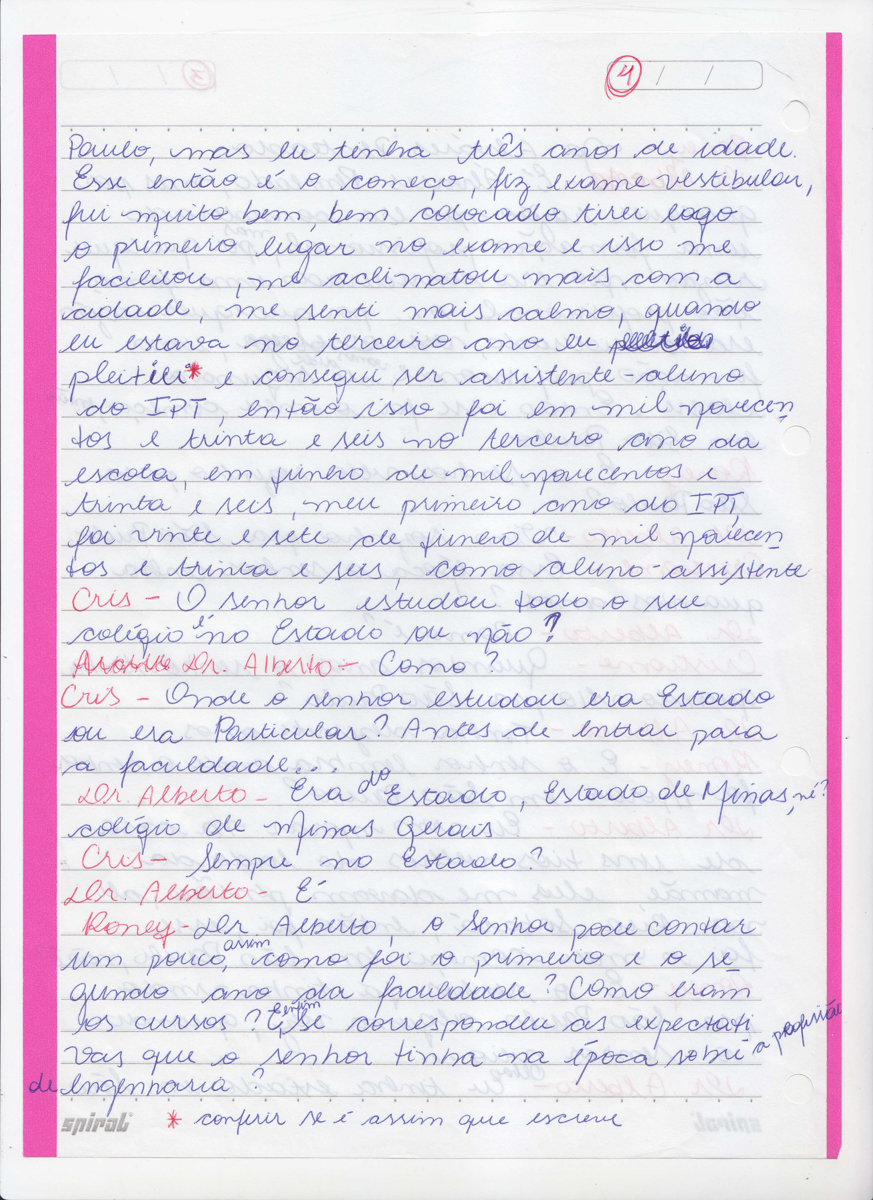 4 / /
Paulo, mas eu tinha três anos de idade.
Esse então é o começo, fiz exame vestibular,
fui muito bem, bem colocado tirei logo
o primeiro lugar no exame e isso me
mas
facilitou, me aclimatou mais com a
cidade, me senti mais calmo, quando
eu estava no terceiro ano eu
pleitiei* e consegui ser assistente-aluno
do IPT, então isso foi em mil novecen
tos e trinta e seis no terceiro ano da
escola, em junero de mil novecentos e
trinta e seis, meu primeiro ano do IPT,
foi vinte e sete de junero de mil novecen
tos e trinta e seis, como aluno-assistente
Cris - O senhor estudou todo o seu
colégio é no Estado ou não?
Dr. Alberto - Como?
Cris - Onde o senhor estudou era Estado
ou era Particular? Antes de entrar para
a faculdade...
Dr. Alberto - Era do Estado, Estado de Minas, né?
colégio de Minas Gerais
Cris - Sempre no Estado?
Dr. Alberto - É
Roney - Dr. Alberto, o Senhor pode contar
um pouco, assim como foi o primeiro e o se
gundo ano da faculdade? Como eram
os cursos? Enfim, se correspondeu as expectati
vas que o senhor tinha na época sobre a profissão
de engenharia?
spiral * conferir se é assim que escreve